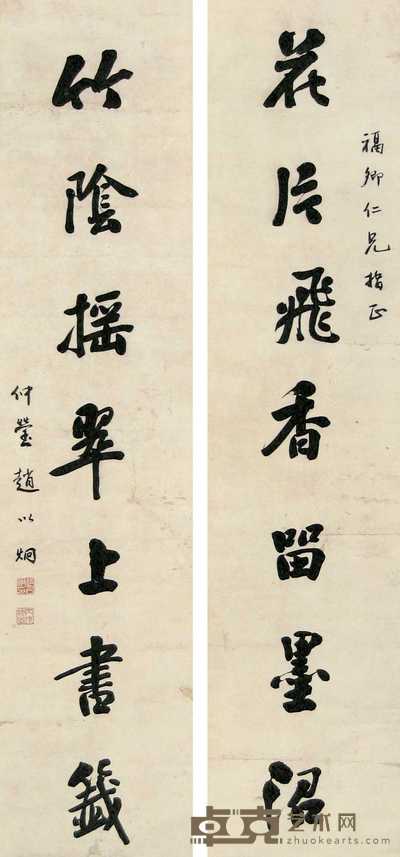 福卿仁兄指正
花片飛香留墨沼
竹陰搖翠上書籤
仲瑩趙以炯
卓克艺术网
zhuokearts.com